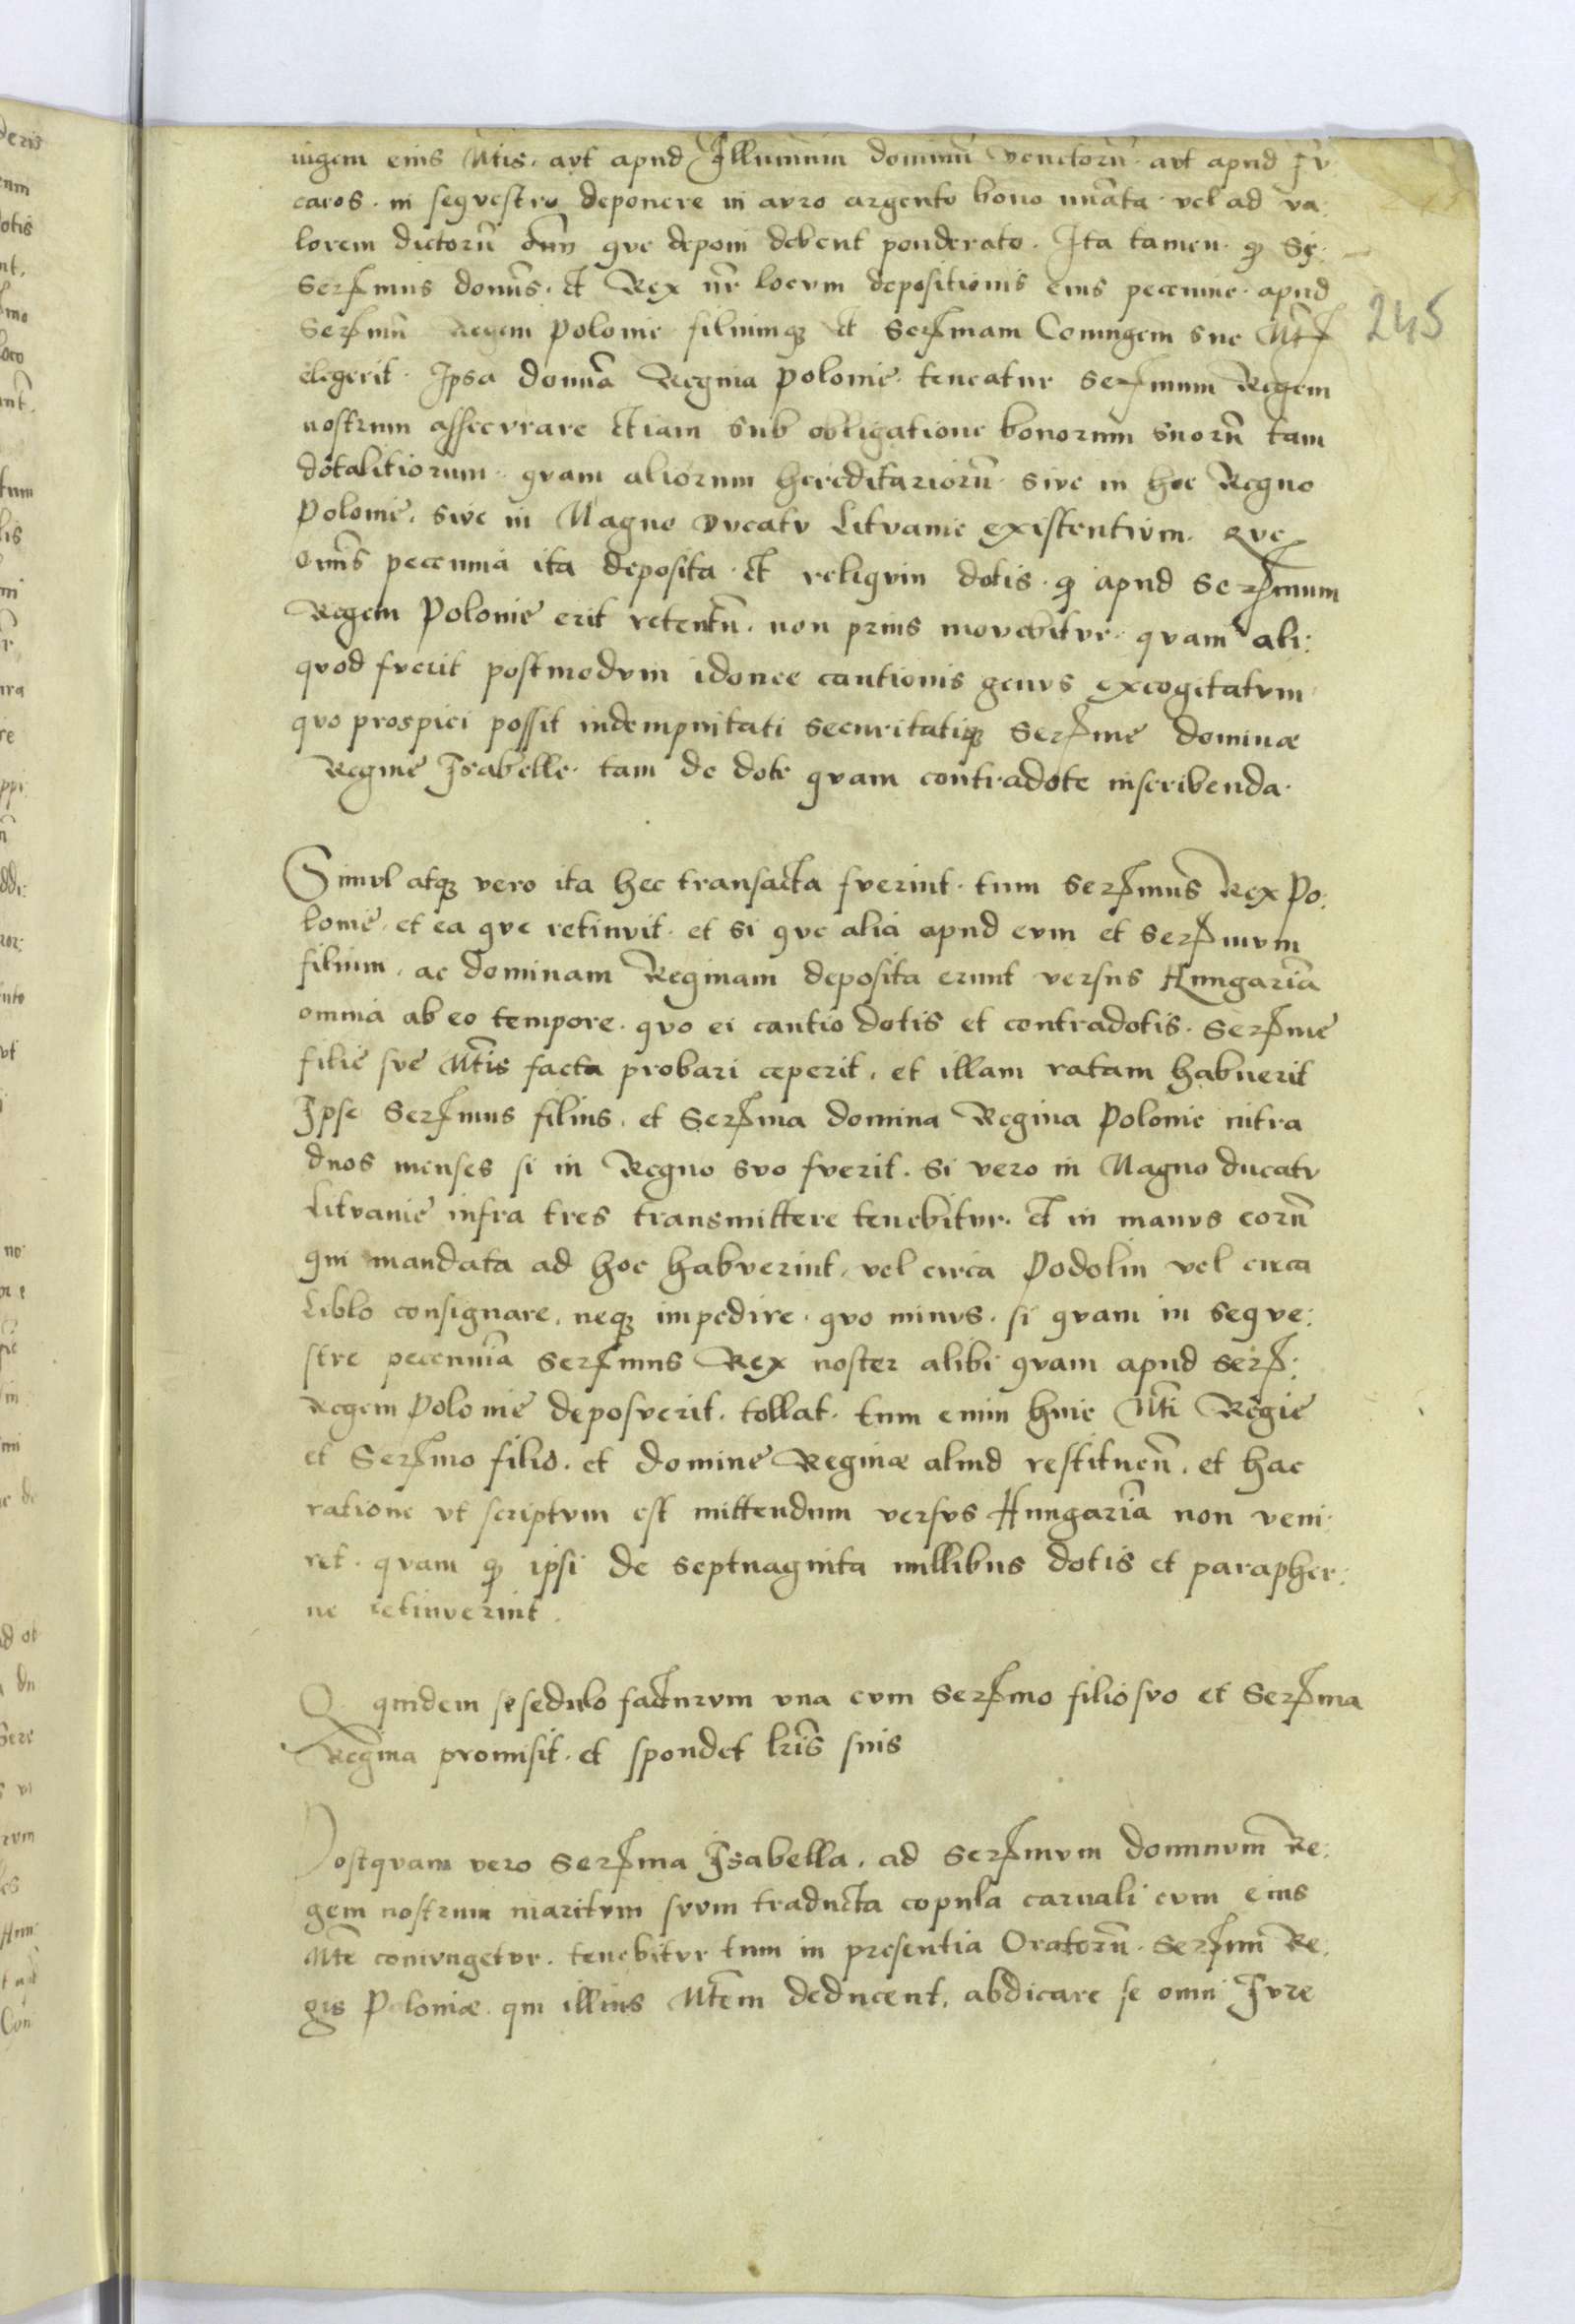 iugem eius Mtis. aut apud Illumium dominiu venetoru aut apud Fu
caros. in sequestro deponere in auro argento bono muata vel ad va:
lorem dictoru que deponi debent ponderato. Ita tamen q si
Serßmus domus. et Rex nr locum depositionis eius pecunie. apud
Serßmu Regem polonie filiumq et Serßmam Coniugem sue Mtß
elegerit. Ipsa domna Regina polonie. teneatur serßmum Regem
nostrum assecurare etiam sub obligatione bonorum suoru tam
dotalitiorum quam aliorum hereditarioru sive in hoc Regno
polonie, sive in Magno Ducatu Lituanie existentium. Que
omis pecunia ita deposita et reliquin dotis. q apud Serßmum
Regem polonie erit retentu. non prius movebitur. quam ali:
quod fuerit postmodum idonee cautionis genus excogitatum
quo prospici possit indempnitati securitatiq Serßme dominæ
Regine Isabelle. tam de dote quam contradote inscribenda.
Simul atq vero ita hec transacta fuerint. tum serßmus Rex Po:
lonie. et ea que retinuit. et si que alia apud eum et Serßmum
filium. ac dominam Reginam deposita erunt versus Hungaria
omnia ab eo tempore. quo ei cautio dotis et contradotis. Serßme
filie sue Mtis facta probari ceperit. et illam ratam habuerit
Ipse Serßmus filius. et Serßma domina Regina polonie intra
duos menses si in Regno suo fuerit. Si vero in Magno ducatu
Lituanie infra tres transmittere tenebitur. et in manus eoru
qui mandata ad hoc habuerint. vel circa Podolin vel circa
Liblo consignare. neq impedire. quo minus. si quam in seque:
stre pecunia Serßmus Rex noster alibi quam apud serß:
Regem polonie deposuerit. tollat. tum enim huic Mti Regie
et Serßmo filio. et domine Reginæ aliud restituen. et hac
ratione ut scriptum est mittendum versus Hungaria non veni:
ret. quam q ipsi de septuaginta millibus dotis et parapher:
ne retinuerint.
Q quidem se sedulo facturum una cum Serßmo filio suo et Serßma
Regina promisit. et spondet lris suis
Postquam vero Serßma Isabella. ad Serßmum dominum Re:
gem nostrum maritum suum traducta copula carnali cum eius
Mte coniungetur. tenebitur tum in presentia Oratoru. Serßmi Re:
gis Poloniæ. qui illius Mtem deducent. abdicare se omni Iure
245